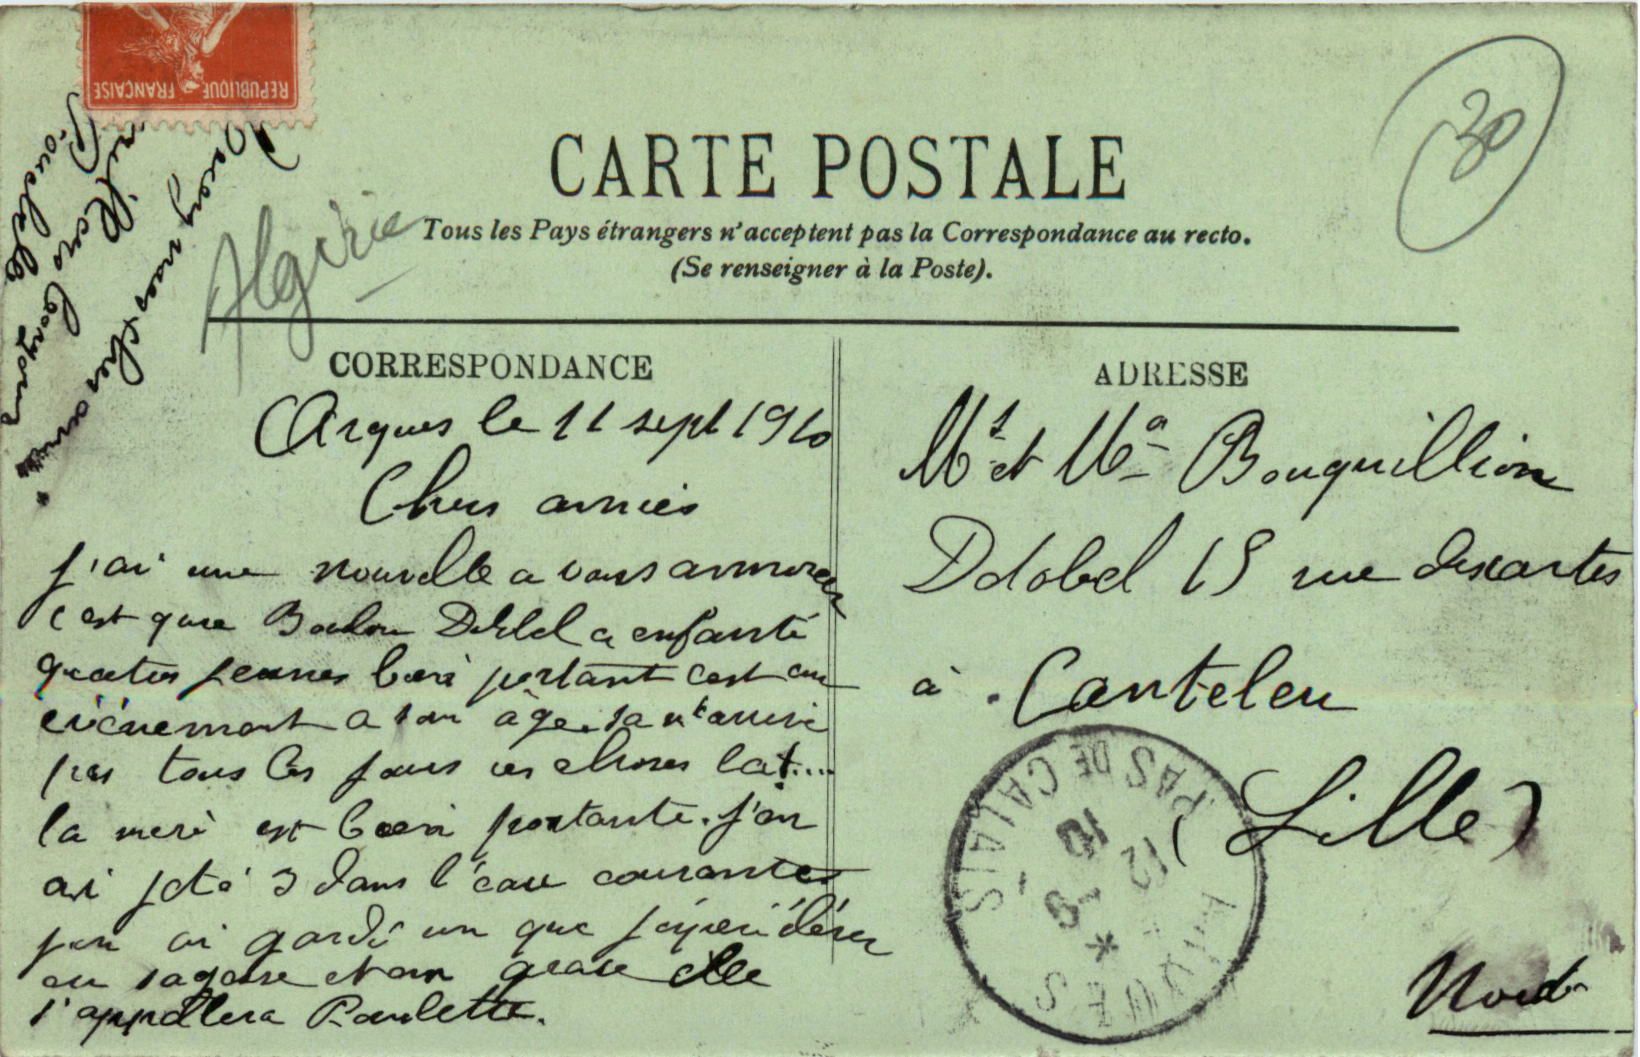 REPUBLIQUE FRANÇAISE
30
CARTE POSTALE
Tous les Pays étrangers n'acceptent pas la Correspondance au recto.
(Se renseigner à la Poste).
Algérie
CORRESPONDANCE
Arques le 11 sept 1910
Chers amies
j'ai une nouvelle a vous annoncer
c'est que Delobel a enfanté
quatres jeunes bien portant c'est un
événement a son âge. sa n'arrive
pas tous les jours ces choses lat....
la mere est bien portante. j'en
ai jeté 3 dans l'eau courantes
j'en ai gardé un que j'espere élever
en sagesse et en grace elle
s'appellera Paulette.
mes chers amies
mille bonjour
ADRESSE
Mr et Me Bouquillion
Delobel 15 rue descartes
à Canteleu
(Lille)
Nord
ARQUES
PAS DE CALAIS
12 -9
10